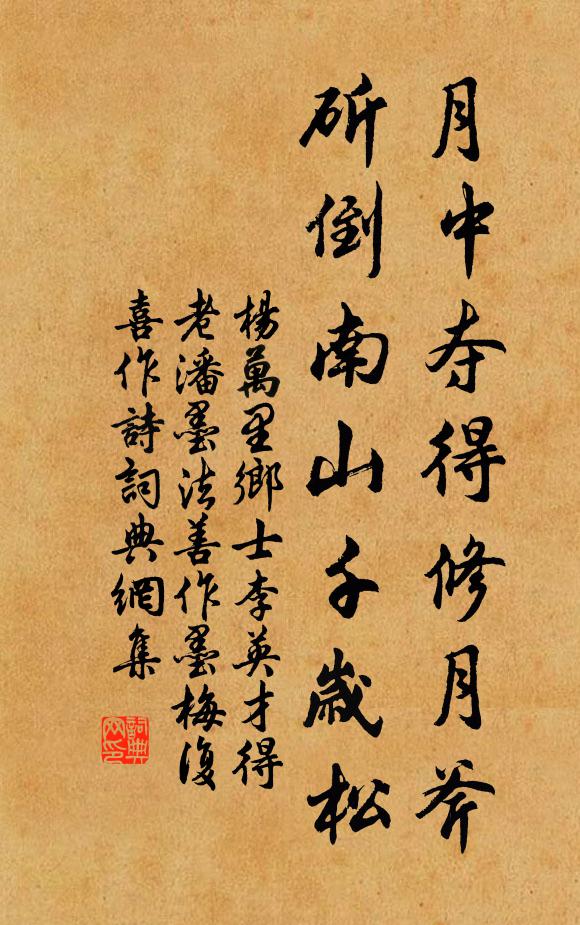 月中夺得修月斧
斫倒南山千歲松
楊萬里鄉士李英才得
老潘墨法善作墨梅復
喜作詩詞典網集
詞典
网印